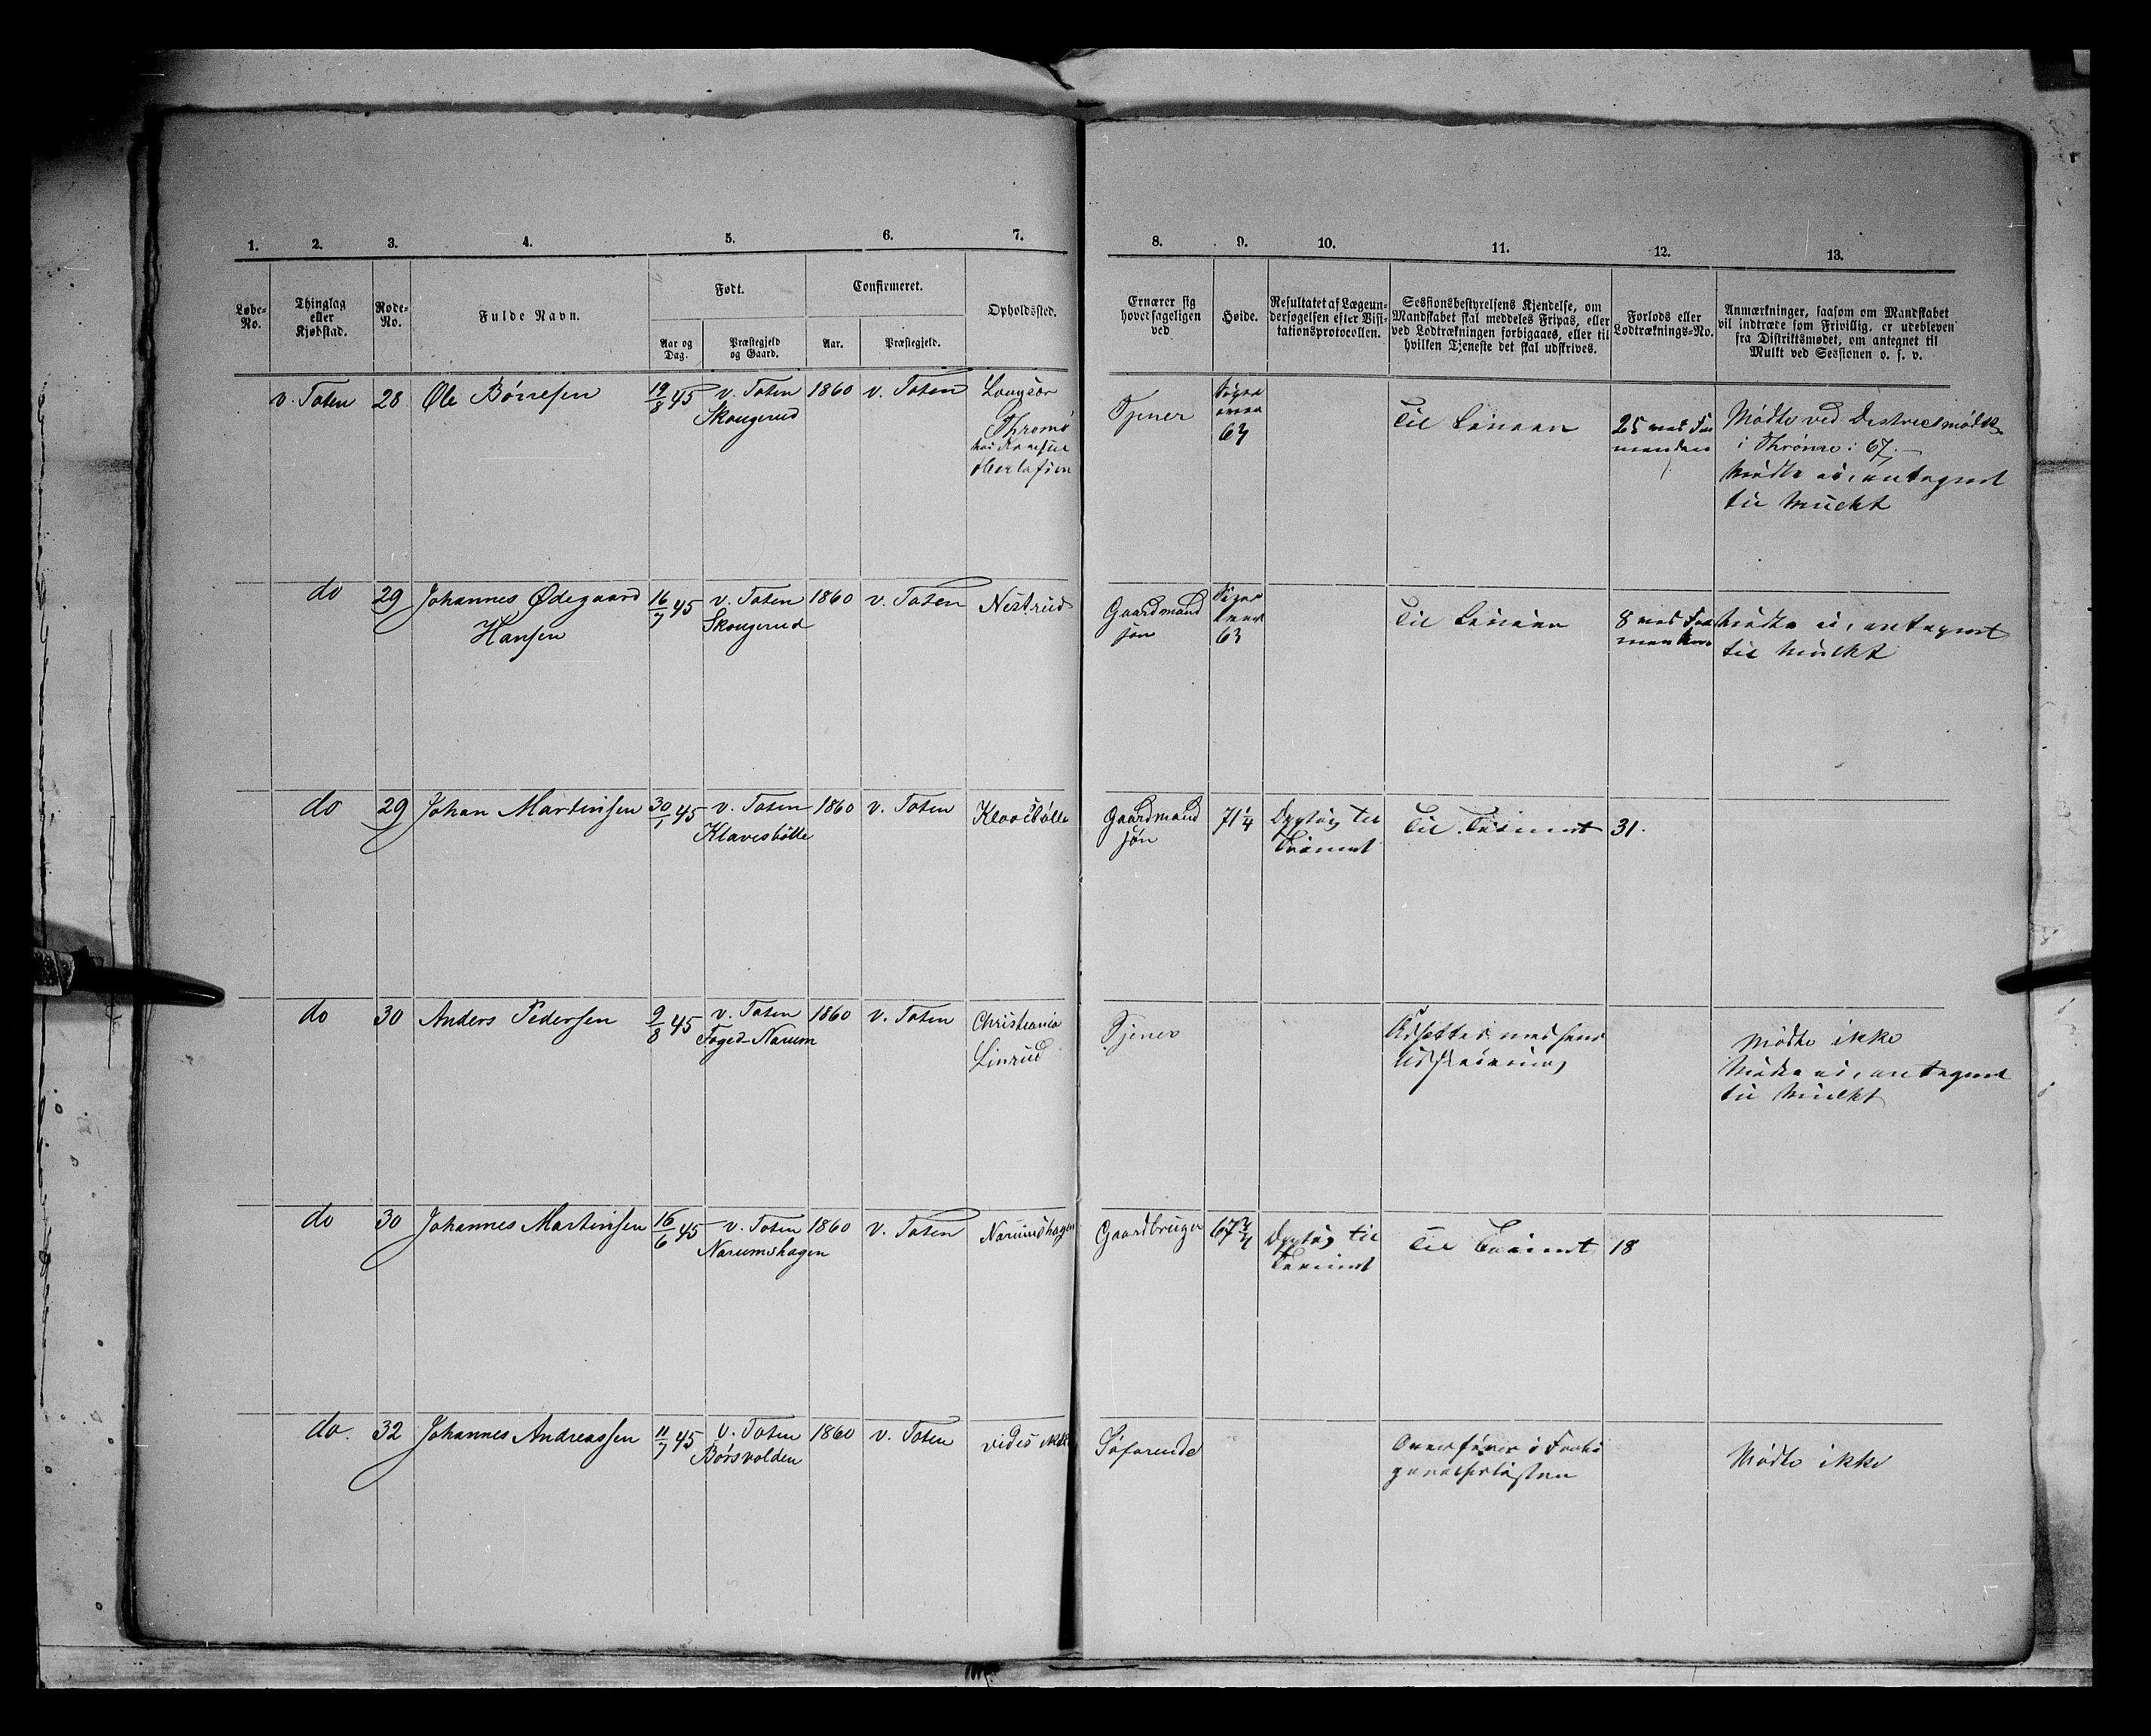 1. 2. 3. 4. 5. 6. 7. 8. 9. 10. 11. 12. 13.
Løbe-No.
Thinglag eller Kjøbstad.
Rode-No.
Fulde Navn.
Født.
Aar og Dag.
Præstegjeld og Gaard.
Confirmeret.
Aar.
Præstegjeld.
Opholdssted.
Ernærer sig hovedsageligen ved
Høide.
Resultatet af Lægeundersøgelsen efter Visitationsprotocollen.
Sessionsbestyrelsens Kjendelse, om Mandskabet skal meddeles Fripas, eller ved Lodtrækningen forbigaaes, eller til hvilken Tjeneste det skal udskrives.
Forlods eller Lodtræknings-No.
Anmærkninger, saasom om Mandskabet vil indtræde som Frivillig, er udebleven fra Distriktsmødet, om antegnet til Mulkt ved Sessionen o. s. v.
v. Toten 28 Ole Børresen 19/8 45 v. Toten 1860 v. Toten
Skougerud
Thromø
Tjener
over
64
Til Linien
25
Mødte ved Districtsmødet
i Thromø: 67.
Mødte ei, antegnet
til Mulckt
do 29 Johannes Ødegaard 16/7 45 v. Toten 1860 v. Toten Nestrud
Hansen Skougerud
Gaardmand
søn
63
Til Linien
8
Mødte ei, antegnet
til Mulckt
do 29 Johan Martinsen 30/1 45 v. Toten 1860 v. Toten Klavesbølle
Klavesbølle
Gaardmand 71 1/4 Dygtig til Til Trainet 31.
søn Trainet
do 30 Anders Pedersen 9/8 45 v. Toten 1860 v. Toten Christiania
Foged-Narum Linrud
Tjener
Udsættes med hens
Udskrivning
Mødte ikke
Mødte ei, antegnet
til Mulckt
do 30 Johannes Martinsen 16/6 45 v. Toten 1860 v. Toten Narumshagen
Narumshagen
Gaardbruger 67 3/4 Dygtig til Til Trainet 18
Trainet
do. 32 Johannes Andreassen 11/7 45 v. Toten 1860 v. Toten vides ikke
Børsvolden
Søfarende
Overføres i
Mødte ikke